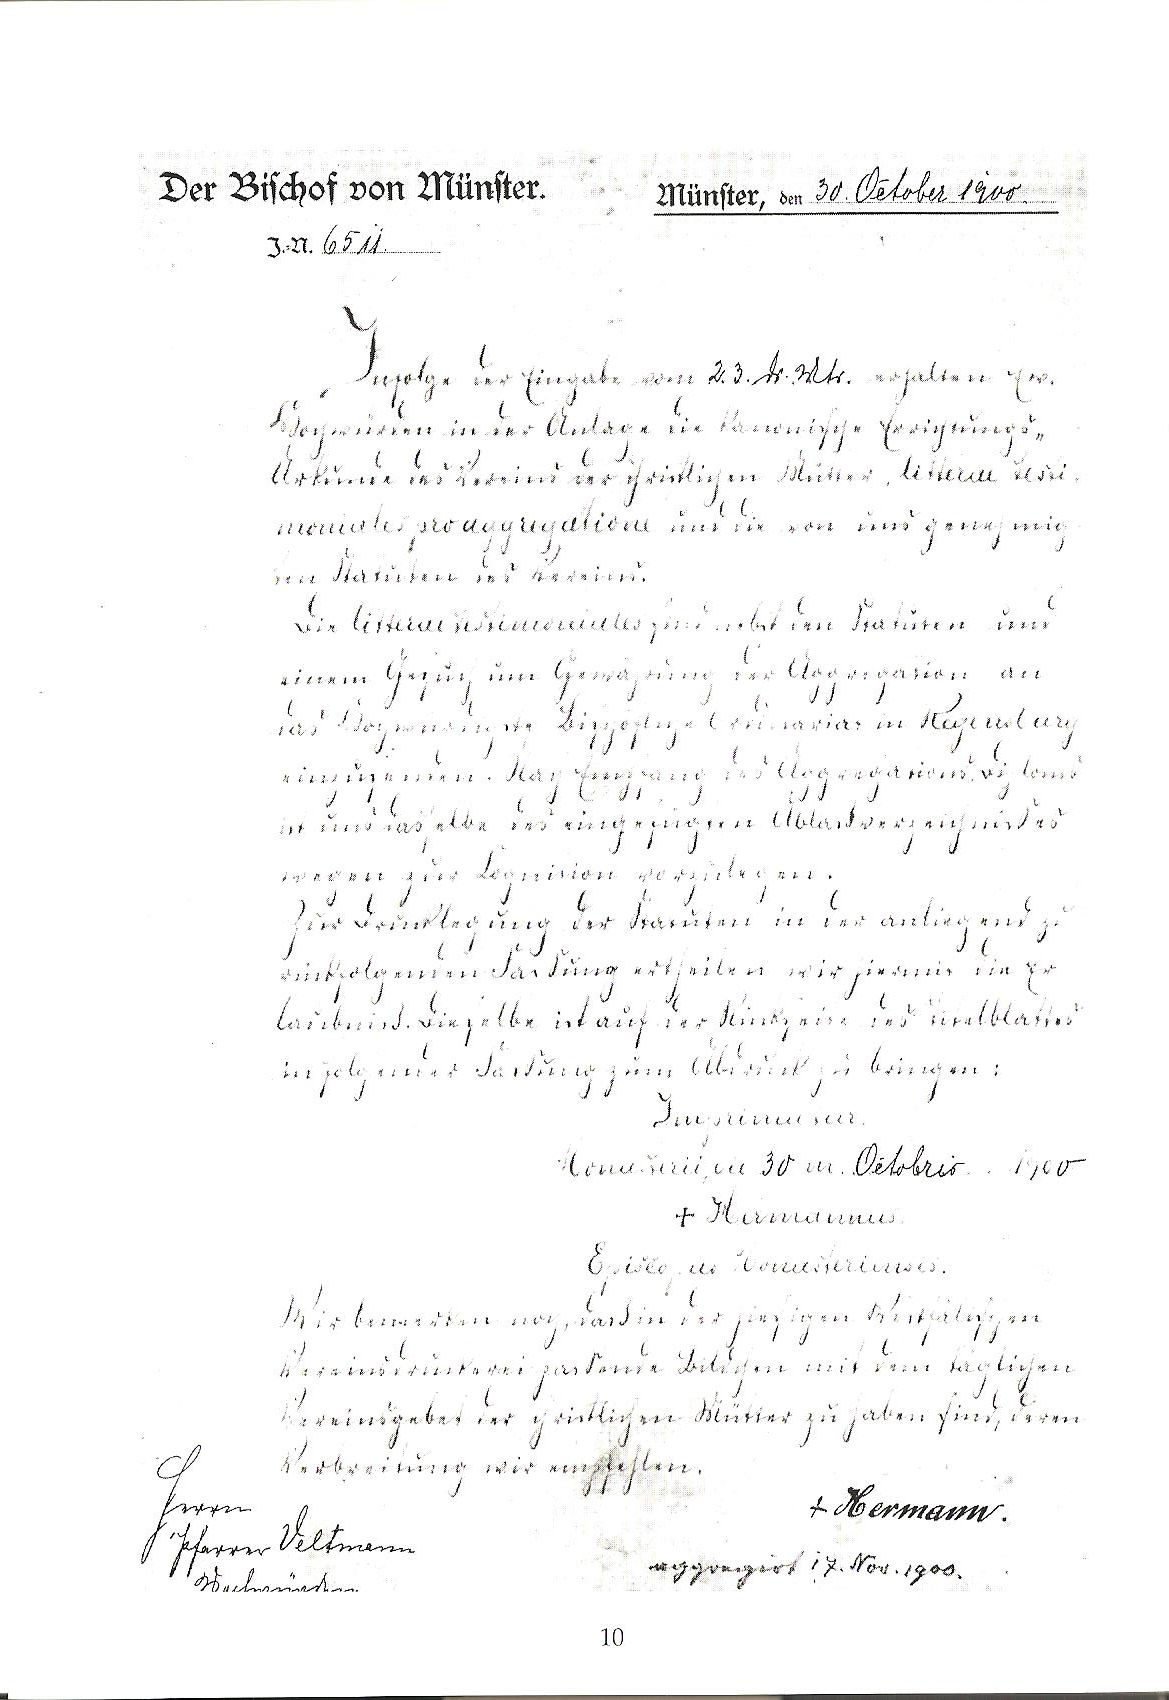 Der Bischof von Münster.
Münster, den 30. October 1900.
J.-N. 6511.
Infolge der Eingabe vom 23. ds. Mts. erhalten Ew.
Hochwürden in der Anlage die kanonische Errichtungs-
Urkunde des Vereins der christlichen Mütter, litterae testi-
moniales pro aggregatione und die von uns genehmig
ten Statuten des Vereins.
Die litterae testimoniales sind nebst den Statuten und
einem Gesuch um Gewährung der Aggregation an
das Hochwürdigste Bischöfliche Ordinariat in Regensburg
einzusenden. Nach Empfang des Aggregations-Diploms
ist uns dasselbe des eingefügten Ablassverzeichnisses
wegen zur Kognition vorzulegen.
Zur Drucklegung der Statuten in der anliegend zu
rückfolgenden Fassung ertheilen wir hiermit die Er
laubniss. Dieselbe ist auf der Rückseite des Titelblattes
in folgender Fassung zum Abdruck zu bringen:
Imprimatur.
Monasterii, die 30 m. Octobris 1900
+ Hermannus
Episcopus Monasteriensis.
Wir bemerken noch, dass in der hiesigen Westfälischen
Vereinsdruckerei passende Bildchen mit dem täglichen
Vereinsgebet der christlichen Mütter zu haben sind, deren
Verbreitung wir empfehlen.
+ Hermann.
Herrn
Pfarrer Veltmann
Hochwürden
aggregirt 17. Nov. 1900.
10